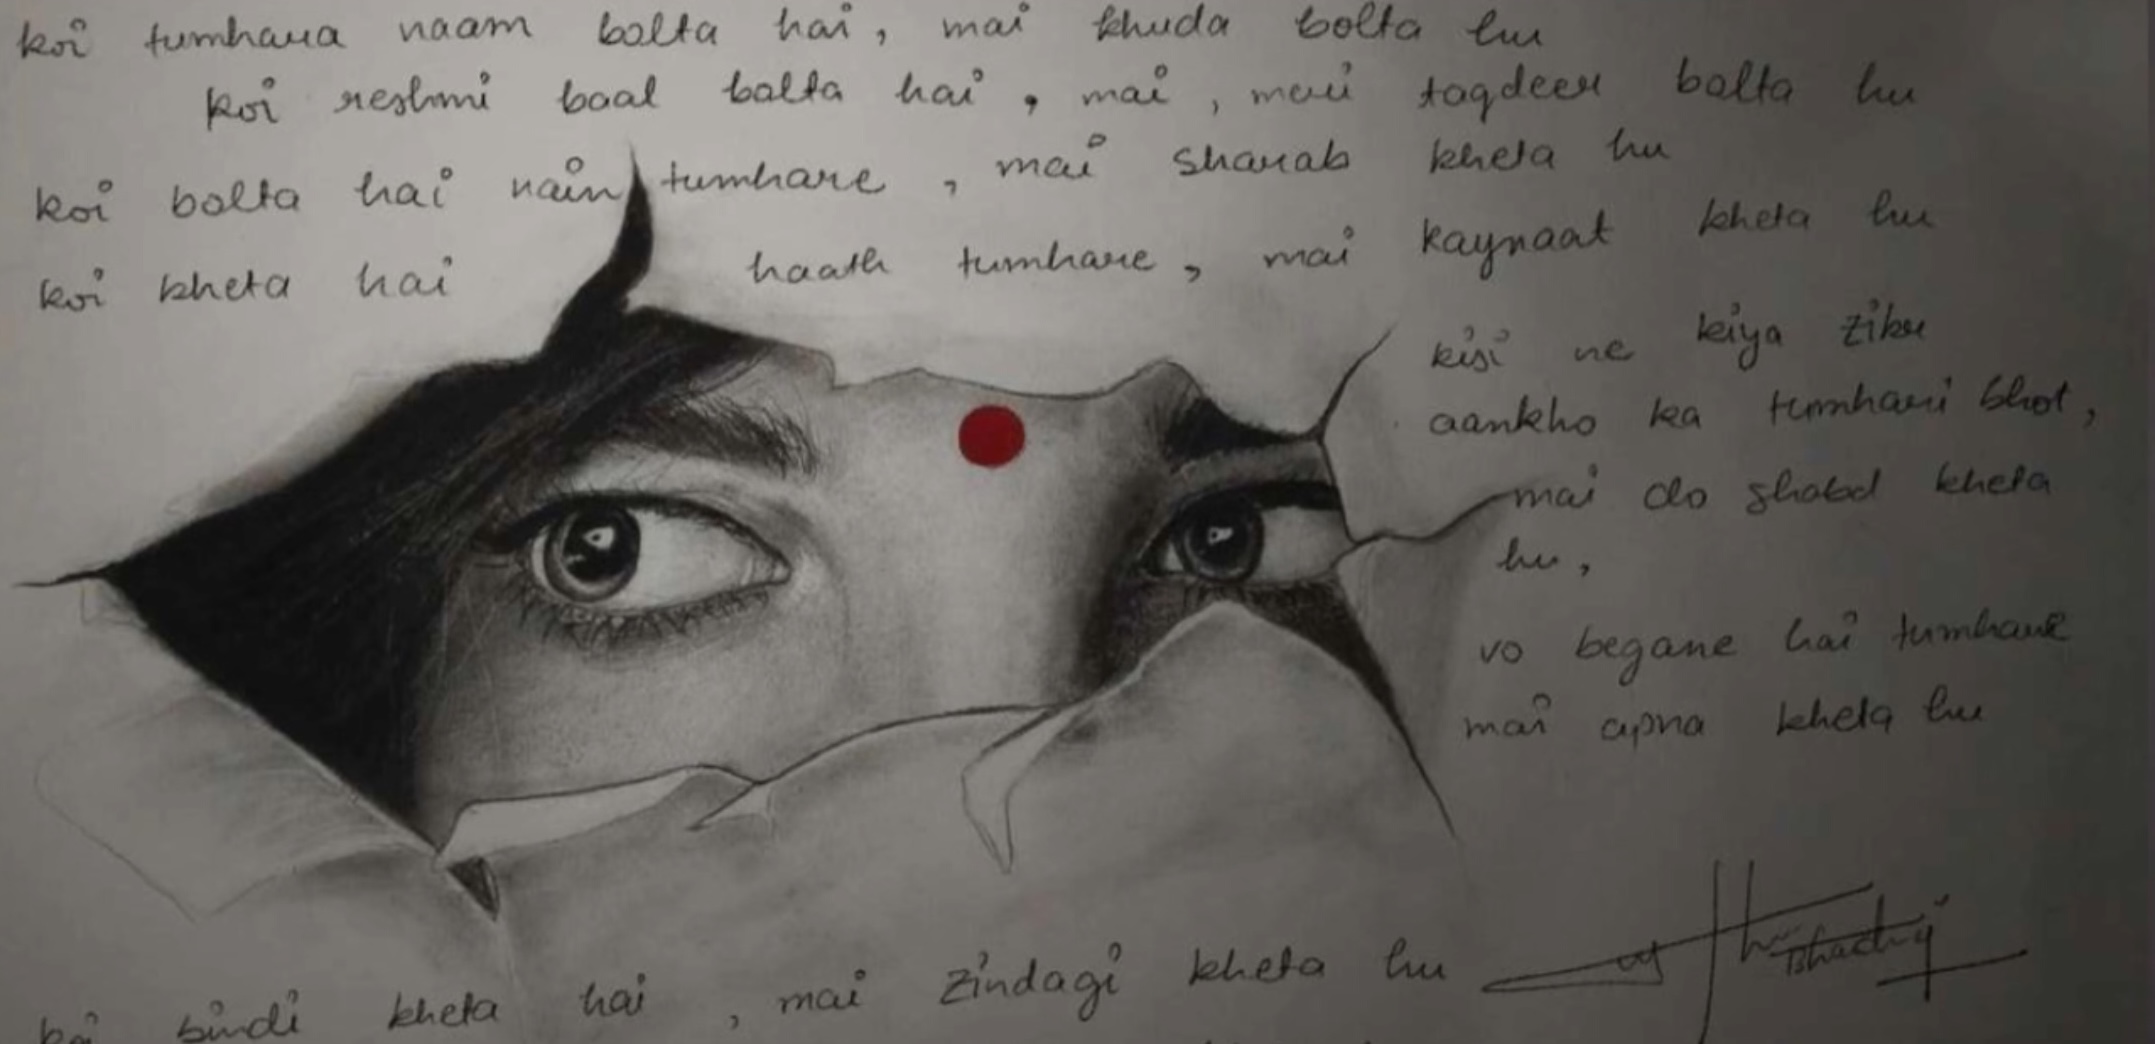 koi tumhara naam bolta hai, mai khuda bolta hu
koi reshmi baal bolta hai, mai, meri taqdeer bolta hu
koi bolta hai nain tumhare, mai sharab kheta hu
koi kheta hai haath tumhare, mai kaynaat kheta hu
kisi ne kiya zikr
aankho ka tumhari bhot,
mai do shabd kheta
hu,
vo begane hai tumhare
mai apna kheta hu
bindi kheta hai, mai zindagi kheta hu